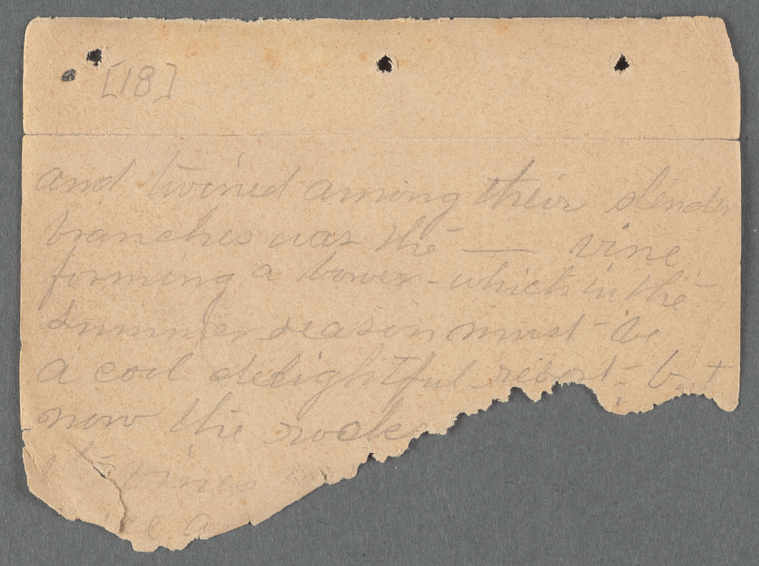 [18]
and twined among their slender
branches was the — vine
forming a bower - which in the
summer season must be
a cool delightful resort - but
now the rock
vines